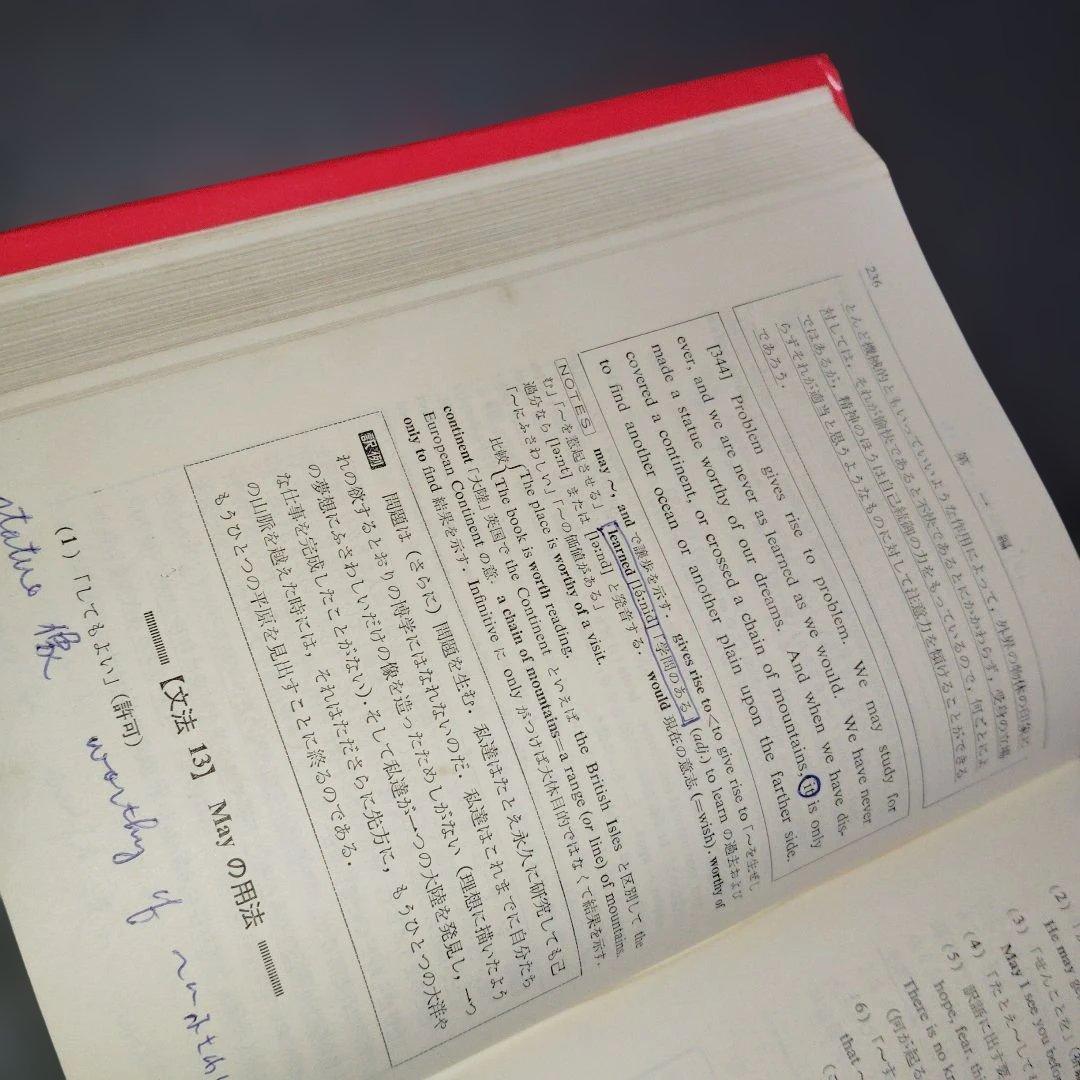 236
第一編
とんど機械的ともいっていいような作用によって，外界の物体の印象に
対しては，それが愉快であると不快であるとにかかわらず，
ではあるが，精神のほうは自己統御の力をもっているので，何ごとによ
らずそれが適当と思うようなものに対して注意力を傾けることができる
であろう．
[344] Problem gives rise to problem. We may study for
ever, and we are never as learned as we would. We have never
made a statue worthy of our dreams. And when we have dis-
covered a continent, or crossed a chain of mountains, it is only
to find another ocean or another plain upon the farther side.
NOTES may ～, and で譲歩を示す． gives rise to＜to give rise to「～を生ぜし
む」「～を惹起させる」 learned [lə́ːnid]「学問のある」(adj.) to learn の過去および
過分なら [ləːnt] または [ləːnd] と発音する． would 現在の意志 (=wish). worthy of
「～にふさわしい」「～の価値がある」
比較 { The place is worthy of a visit.
The book is worth reading.
continent「大陸」英国で the Continent といえば the British Isles と区別して the
European Continent の意． a chain of mountains=a range (or line) of mountains.
only to find 結果を示す． Infinitive に only がつけば大体目的ではなくて結果を示す．
訳例
問題は (さらに) 問題を生む． 私達はたとえ永久に研究しても己
れの欲するとおりの博学にはなれないのだ． 私達はこれまでに自分たち
の夢想にふさわしいだけの像を造ったためしがない (理想に描いたよう
な仕事を完成したことがない)．そして私達が一つの大陸を発見し，一つ
の山脈を越えた時には，それはたださらに先方に，もうひとつの大洋や
もうひとつの平原を見出すことに終るのである．
【文法 13】 May の用法
(1)「してもよい」(許可)
statue 像
worthy of ～
(2) He may
May I see you before
(3)「せんことを」
(4)「たとえ～しても
(5) 訳語に出す要
hope, fear, thi
There is no k
6)「～す
that ～